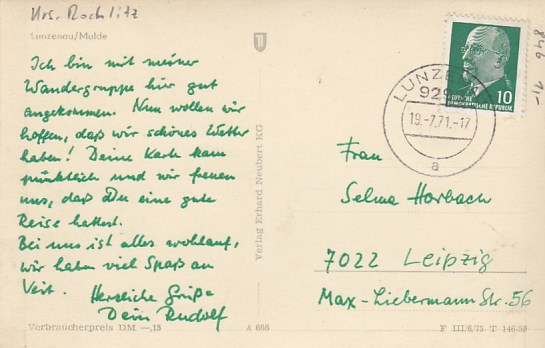 Krs. Rochlitz
Lunzenau/Mulde
Ich bin mit meiner
Wandergruppe hier gut
angekommen. Nun wollen wir
hoffen, daß wir schönes Wetter
haben! Deine Karte kam
pünktlich und wir freuen
uns, daß Du eine gute
Reise hattest.
Bei uns ist alles wohlauf,
wir haben viel Spaß an
Veit. Herzliche Grüße
Dein Rudolf
Verbraucherpreis DM —,15
A 666
Verlag Erhard Neubert KG
LUNZENAU
929
19.-7.71.-17
a
DEUTSCHE
DEMOKRATISCHE REPUBLIK
10
846
1,-
Frau
Selma Horbach
7022 Leipzig
Max-Liebermann Str. 56
F III/6/75 T 146-59